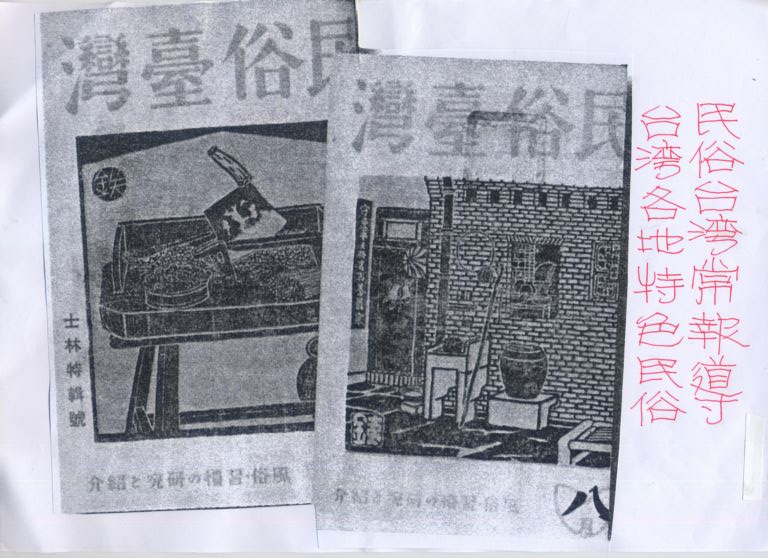 民俗臺灣
士林特輯號
風俗・習慣の研究と紹介
民俗臺灣
風俗・習慣の研究と紹介
八月
民俗台湾常報導
台湾各地特色民俗